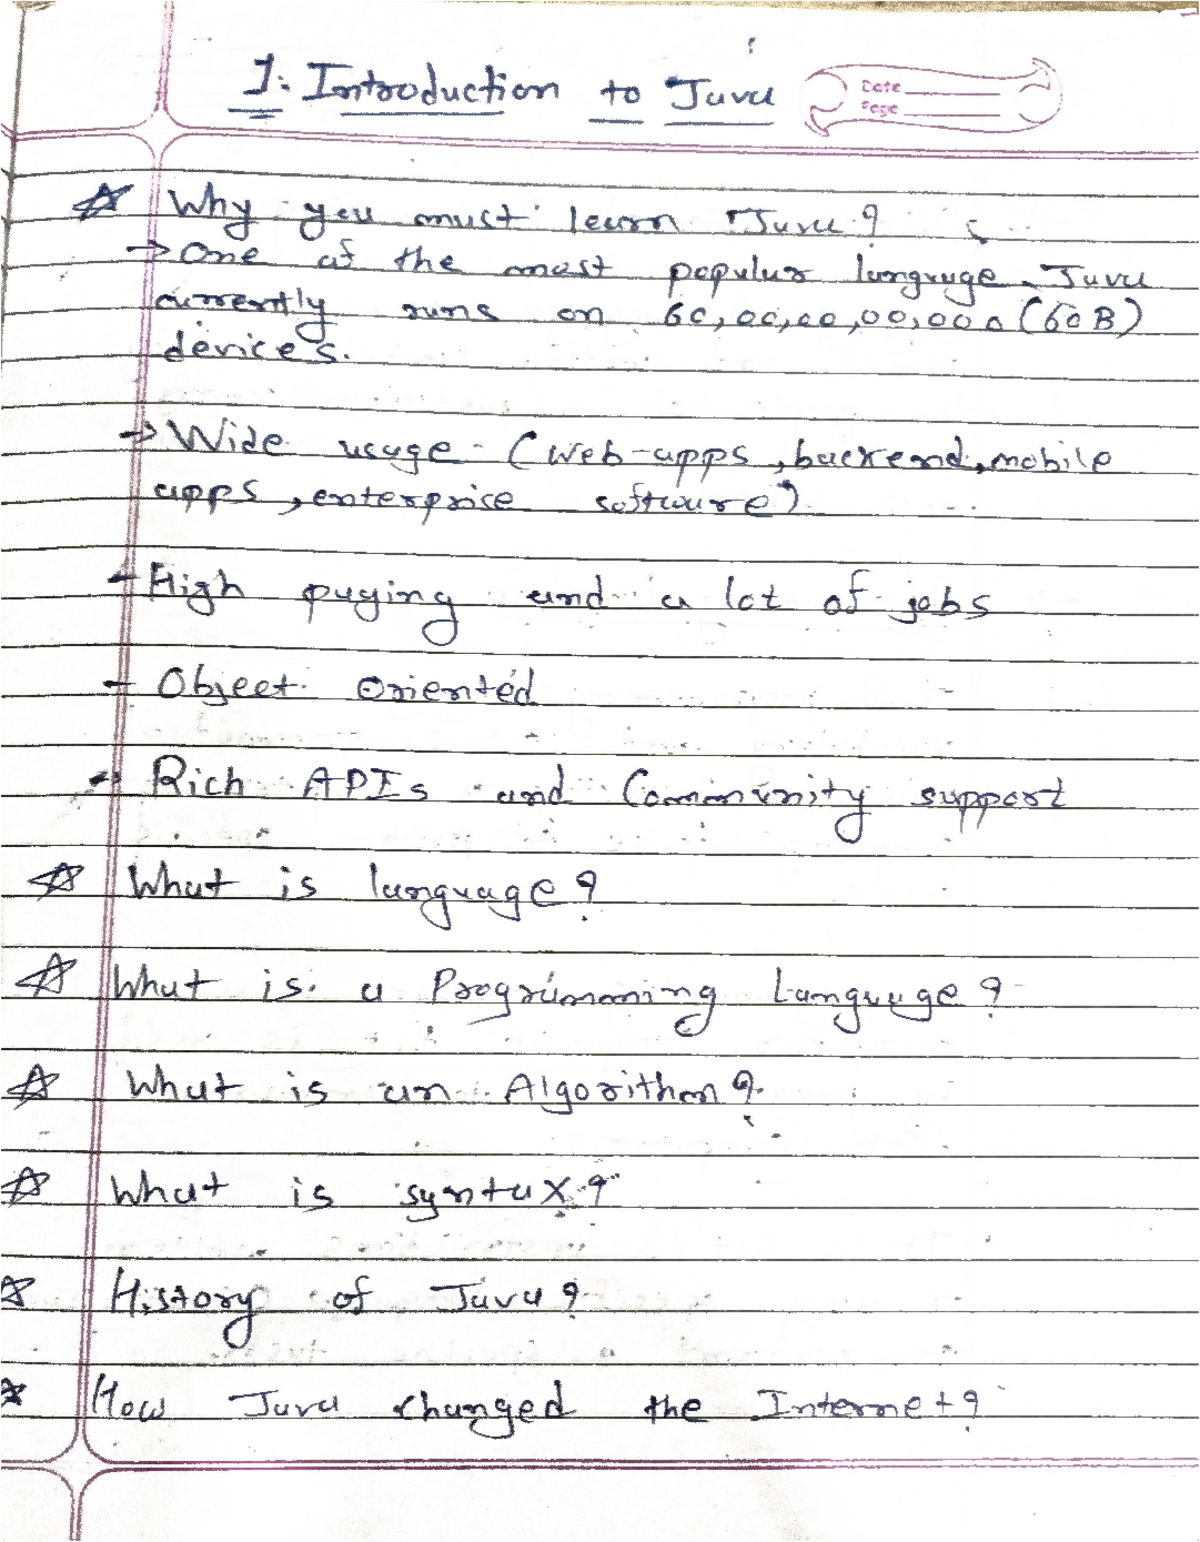 1. Introduction to Java
Date
Page
☆ Why you must learn Java?
→ One of the most popular language, Java
currently runs on 60,00,00,00,000 (60B)
devices.
→ Wide usage - (Web-apps, backend, mobile
apps, enterprise software).
→ High paying and a lot of jobs
→ Object Oriented
→ Rich APIs and Community support
☆ What is language?
☆ What is a Programming Language?
☆ What is an Algorithm?
☆ What is syntax?
☆ History of Java?
☆ How Java changed the Internet?